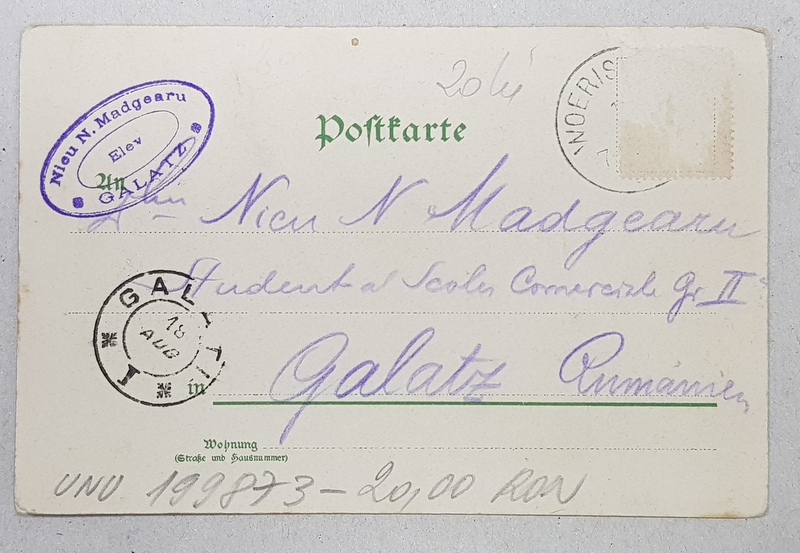 20 lei
WOERIS
Nicu N. Madgearu
Elev
GALATZ
Postkarte
An
Nicu N Madgearu
Student al Scolei Comerciale Gr II
GALATI
18
AUG
I
in
Galatz Rumänien
Wohnung
(Straße und Hausnummer)
UNU 199873 - 20,00 RON